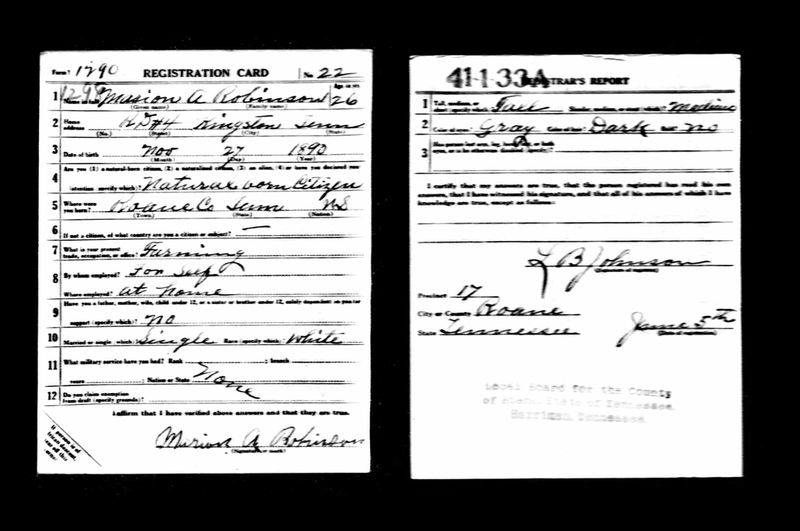 Form 1 1290 REGISTRATION CARD No. 22
1 1298 Name in full Marion A Robinson Age, in yrs. 26
(Given name) (Family name)
2 Home address R.D#4 Kingston Tenn
(No.) (Street) (City) (State)
3 Date of birth Nov 27 1890
(Month) (Day) (Year)
4 Are you (1) a natural-born citizen, (2) a naturalized citizen, (3) an alien, (4) or have you declared your
intention (specify which)? Natural born Citizen
5 Where were you born? Roane Co Tenn US
(Town) (State) (Nation)
6 If not a citizen, of what country are you a citizen or subject? —
7 What is your present trade, occupation, or office? Farming
8 By whom employed? For Self
Where employed? At Home
9 Have you a father, mother, wife, child under 12, or a sister or brother under 12, solely dependent on you for
support (specify which)? No
10 Married or single (which)? Single Race (specify which)? White
11 What military service have you had? Rank ; branch
years ; Nation or State None
12 Do you claim exemption from draft (specify grounds)?
I affirm that I have verified above answers and that they are true.
Marion A Robinson
(Signature or mark)
If person is of African descent,
41-1-33A REGISTRAR'S REPORT
1 Tall, medium, or short (specify which)? Tall Slender, medium, or stout (which)? Medium
2 Color of eyes? Gray Color of hair? Dark Bald? No
3 Has person lost arm, leg, hand, foot, or both eyes, or is he otherwise disabled (specify)?
I certify that my answers are true, that the person registered has read his own
answers, that I have witnessed his signature, and that all of his answers of which I have
knowledge are true, except as follows:
L B Johnson
(Signature of registrar)
Precinct 17
City or County Roane
State Tennessee June 5th
(Date of registration)
Local Board for the County
of State of Tennessee,
Harriman, Tennessee.